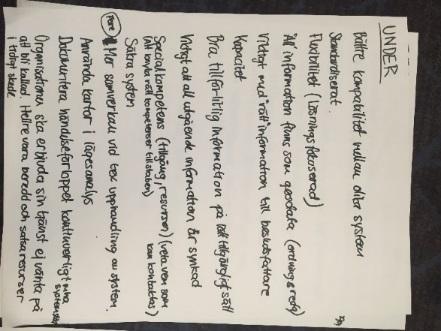 UNDER
Bättre kompatibilitet mellan olika system
Standardiserat
Flexibilitet (Lösningsfokuserad)
"All" information finns som geodata (ordning & reda)
Viktigt med "rätt" information till beslutsfattare
Kapacitet
Bra tillförlitlig information på ett tillgängligt sätt
Viktigt att all utgående information är synkad
Specialkompetens (tillgång, resurser) (veta vem som kan kontaktas)
(att knyta rätt kompetenser till staben)
Säkra system
före Mer samverkan vid tex upphandling av system.
Använda kartor i lägesanalys
Dokumentera händelseförloppet kontinuerligt
Organisationer ska erbjuda sin tjänst ej vänta på
att bli kallad. Hellre vara beredd och säkra resurser
i tidigt skede